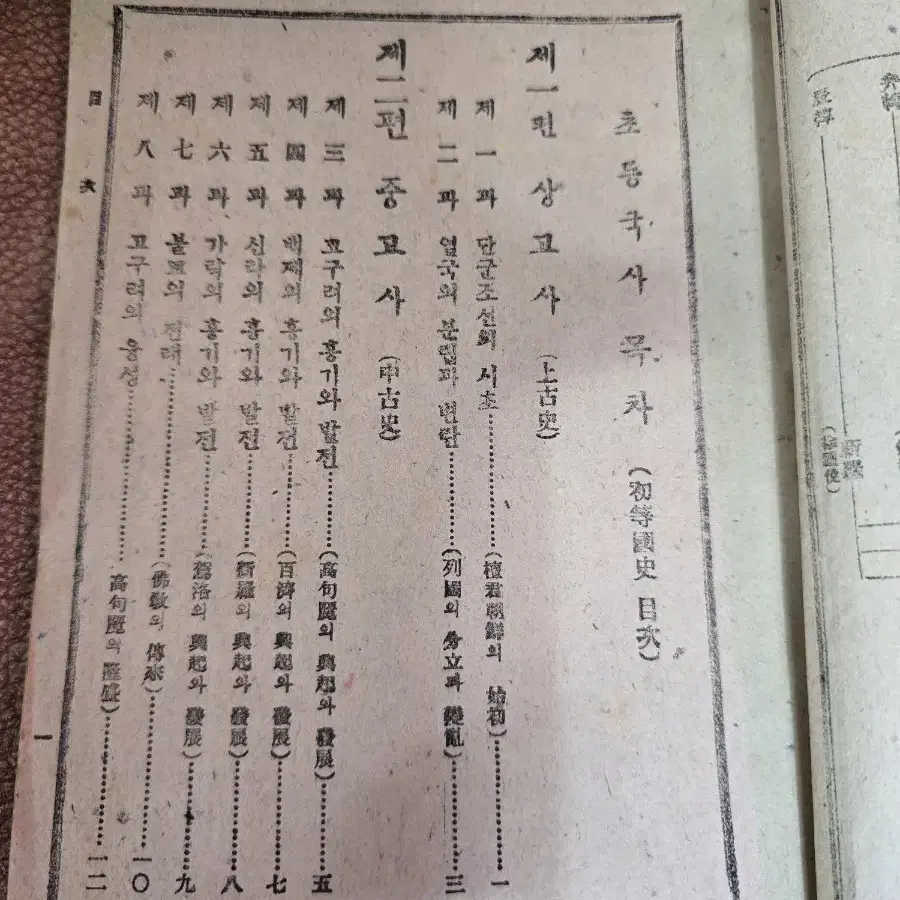 초등국사 목차 (初等國史 目次)
제一편 상고사 (上古史)
제一과 단군조선의 시초 (檀君朝鮮의 始初) 一
제二과 열국의 분립과 변란 (列國의 分立과 變亂) 三
제二편 중고사 (中古史)
제三과 고구려의 흥기와 발전 (高句麗의 興起와 發展) 五
제四과 백제의 흥기와 발전 (百濟의 興起와 發展) 七
제五과 신라의 흥기와 발전 (新羅의 興起와 發展) 八
제六과 가락의 흥기와 발전 (駕洛의 興起와 發展) 九
제七과 불교의 전래 (佛敎의 傳來) 一〇
제八과 고구려의 융성 高句麗의 隆盛) 一二
目次
一
新羅